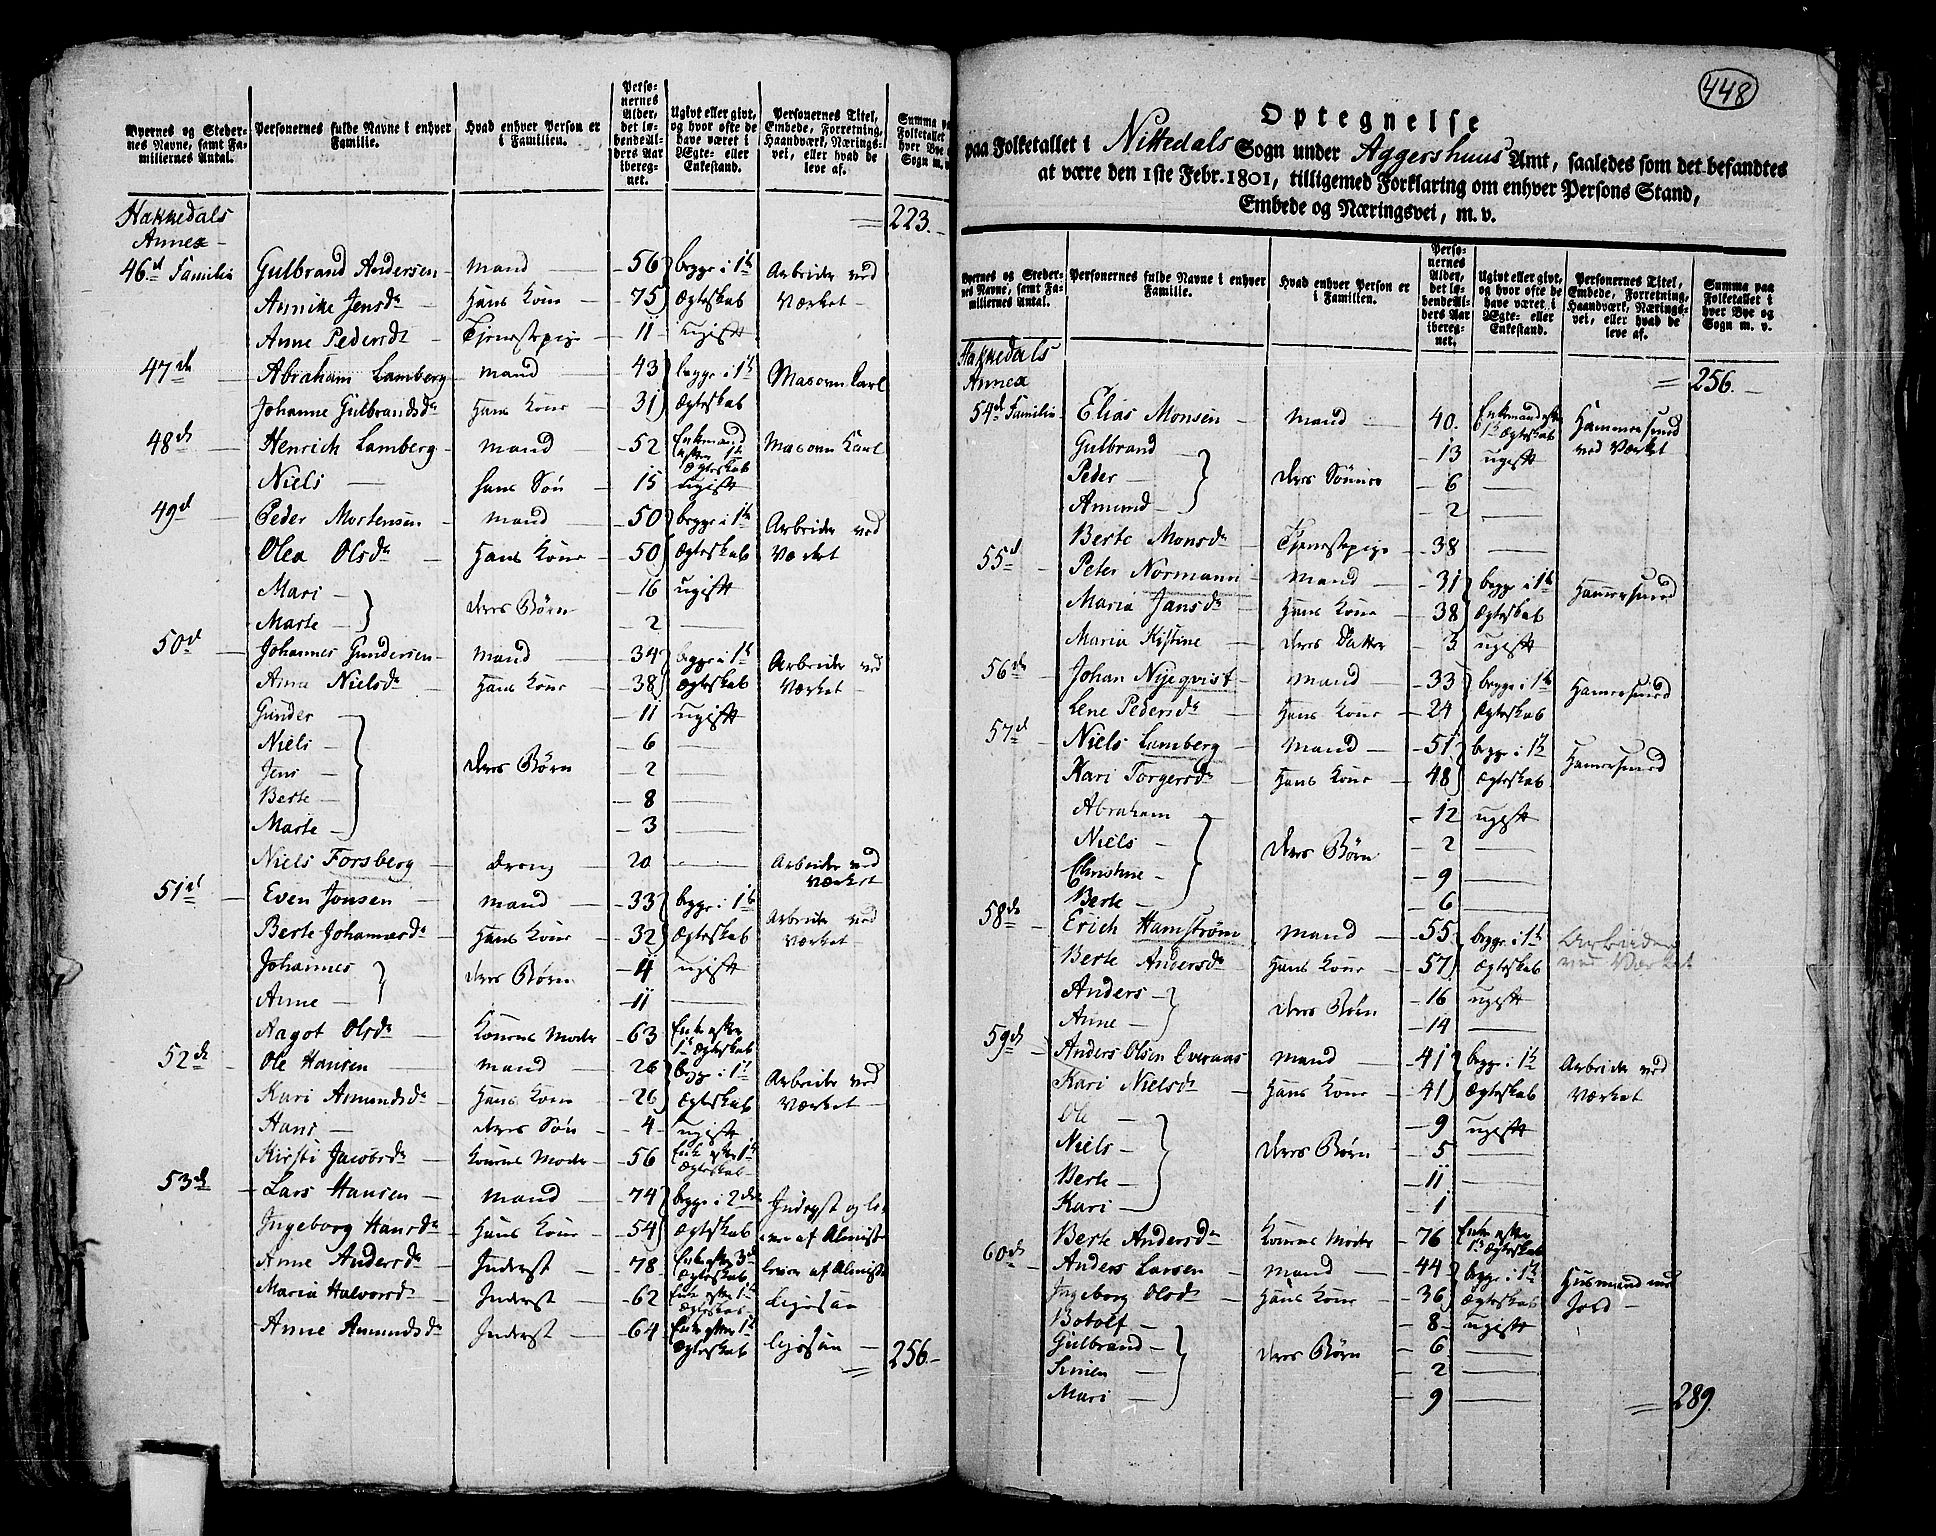 Byernes og Steder-
nes Navne, samt Fa-
miliernes Antal.
Personernes fulde Navne i enhver
Familie.
Hvad enhver Person er
i Familien.
Perso-
nernes
Alder,
det lø-
bende Al-
ders Aar
ibereg-
net.
Ugivt eller givt,
og hvor ofte de
have været i
Ægte- eller
Enkestand.
Personernes Titel,
Embede, Forretning,
Haandværk, Nærings-
vei, eller hvad de
leve af.
Summa paa
Folketallet i
hver Bye og
Sogn m. v.
Hakkedals
Annex 223.
46d Familie Gulbrand Andersen mand 56 begge i 1te Arbeider ved
Annike Jensdr Hans Kone 75 Ægteskab Værket
Anne Pedersdr Tjenestepige 11 ugift
47de Abraham Lamberg mand 43 begge i 1te Masovn Karl
Johanne Gulbrandsdr Hans Kone 31 Ægteskab
48de Henrich Lamberg mand 52 Enkemand efter 1te Ægteskab Masovn Karl
Niels hans Søn 15 ugift
49d Peder Mortensen mand 50 begge i 1te Arbeider ved
Olea Olsdr Hans Kone 50 Ægteskab Værket
Mari 16 ugift
deres Børn
Marte 2
50d Johannes Gundersen mand 34 begge i 1te Arbeider ved
Anna Nielsdr Hans Kone 38 Ægteskab Værket
Gunder 11 ugift
Niels 6
Jens deres Børn 2
Berte 8
Marte 3
Niels Forsberg dreng 20 Arbeider ved Værket
51d Even Jonsen mand 33 begge i 1te Arbeider ved
Berte Johannesdr Hans Kone 32 Ægteskab Værket
Johannes deres Børn 4 ugift
Anne 11
Aagot Olsdr Konens Moder 63 Enke efter 1te Ægteskab
52de Ole Hansen mand 26 begge i 1te Arbeider ved
Kari Amundsdr Hans Kone 26 Ægteskab Værket
Hans deres Søn 4 ugift
Kirsti Jacobsdr Konens Moder 56 Enke efter 1te Ægteskab
53de Lars Hansen mand 74 begge i 2det Inderst og le-
Ingeborg Hansdr Hans Kone 54 Ægteskab ver af Almisse
Anne Andersdr Inderst 78 Enke efter 3d Ægteskab lever af Almisse
Maria Halvorsdr Inderst 62 Enke efter 1te Ægteskab
Anne Amundsdr Inderst 64 Enke efter 1te Ægteskab
256.
448
Optegnelse
paa Folketallet i Nittedals Sogn under Aggershuus Amt, saaledes som det befandtes
at være den 1ste Febr. 1801, tilligemed Forklaring om enhver Persons Stand,
Embede og Næringsvei, m. v.
Byernes og Steder-
nes Navne, samt Fa-
miliernes Antal.
Personernes fulde Navne i enhver
Familie.
Hvad enhver Person er
i Familien.
Perso-
nernes
Alder,
det lø-
bende Al-
ders Aar
ibereg-
net.
Ugivt eller givt,
og hvor ofte de
have været i
Ægte- eller
Enkestand.
Personernes Titel,
Embede, Forretning,
Haandværk, Nærings-
vei, eller hvad de
leve af.
Summa paa
Folketallet i
hver Bye og
Sogn m. v.
Hakkedals
Annex 256.
54d Familie Elias Monsen mand 40. Enkemand efter 1te Ægteskab Hammersmed ved Værket
Gulbrand 13 ugift
Peder deres Sønner 6
Amund 2
Berte Monsdr Tjenestepige 38
55d Peter Normann mand 31 begge i 1te Hammersmed
Maria Jansdr Hans Kone 38 Ægteskab
Maria Kistine deres Datter 3 ugift
56de Johan Nyeqvist mand 33 begge i 1te Hammersmed
Lene Pedersdr Hans Kone 24 Ægteskab
57d Niels Lamberg mand 51 begge i 1te Hammersmed
Kari Torgersdr Hans Kone 48 Ægteskab
Abraham 12 ugift
Niels deres Børn 2
Christine 9
Berte 6
58de Erich Hamstrøm mand 55 begge i 1te Arbeider
Berte Andersdr Hans Kone 57 Ægteskab ved Værket
Anders deres Børn 16 ugift
Anne 14
59de Anders Olsen Overaas mand 41 begge i 1te Arbeider ved
Kari Nielsdr Hans Kone 41 Ægteskab Værket
Ole 9 ugift
Niels deres Børn 5
Berte 11
Kari 1
Berte Andersdr Konens Moder 76 Enke efter 1te Ægteskab
60de Anders Larsen mand 44 begge i 1te Huusmand med
Ingeborg Olsdr Hans Kone 36 Ægteskab Jord
Botolf 8 ugift
Gulbrand deres Børn 6
Simen 2
Mari 9
289.